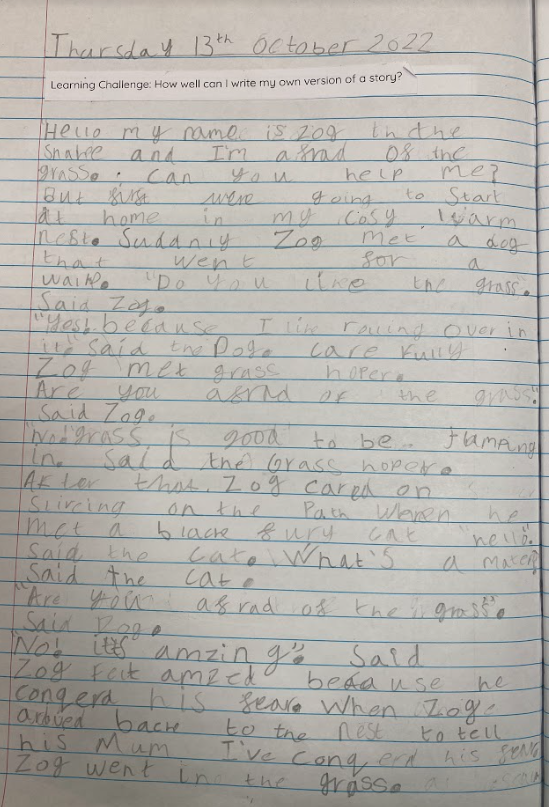 Thursday 13th October 2022
Learning Challenge: How well can I write my own version of a story?
Hello my name is Zog the
Snake and I'm afrad of the
grass. Can you help me?
But first were going to Start
at home in my cosy warm
nest. Sudanly Zog met a dog
that went for a
walk. "Do you like the grass.
Said Zog.
"Yes! because I lik rouling over in
it" said the Dog. Care fully
Zog met grass hoper.
Are you afrad of the grass"
Said Zog.
"No" grass is good to be jumping
in. Said the Grass hoper.
After that Zog cared on
Slircing on the Path he
met a black fury cat "hello".
Said the cat. What's a mater?
Said the cat.
"Are you afrad of the grass".
Said Zog.
"No! it's amzing". Said
Zog felt amzed because he
congerd his fear. When Zog
arived back to the nest to tell
his Mum I've congerd his fear
Zog went in the grass.